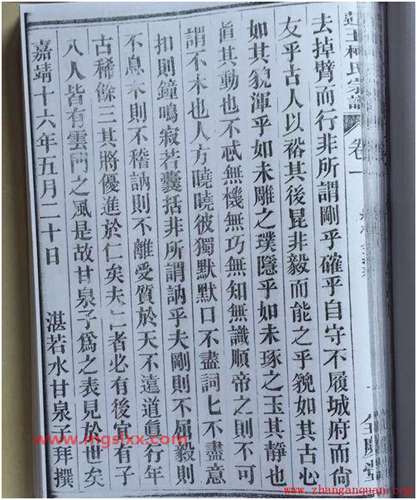 柯氏宗譜 卷一
去掉臂而行非所謂剛乎確乎自守不履城府而尚
友乎古人以裕其後昆非毅而能之乎貌如其古心
如其貌渾乎如未雕之璞隱乎如未琢之玉其靜也
眞其動也不忒無機無巧無知無識順帝之則不可
謂不木也人方曉曉彼獨默默口不盡詞匕不盡意
扣則鐘鳴寂若囊括非所謂訥乎夫剛則不屈毅則
不息木則不稽訥則不離受質於天不遠道眞行年
古稀餘三其將優進於仁矣夫亡者必有後宜有子
八人皆有雲門之風是故甘泉子爲之表見於世矣
嘉靖十六年五月二十日 湛若水甘泉子拜撰
www.mgslxx.com
www.zhanganquan.com